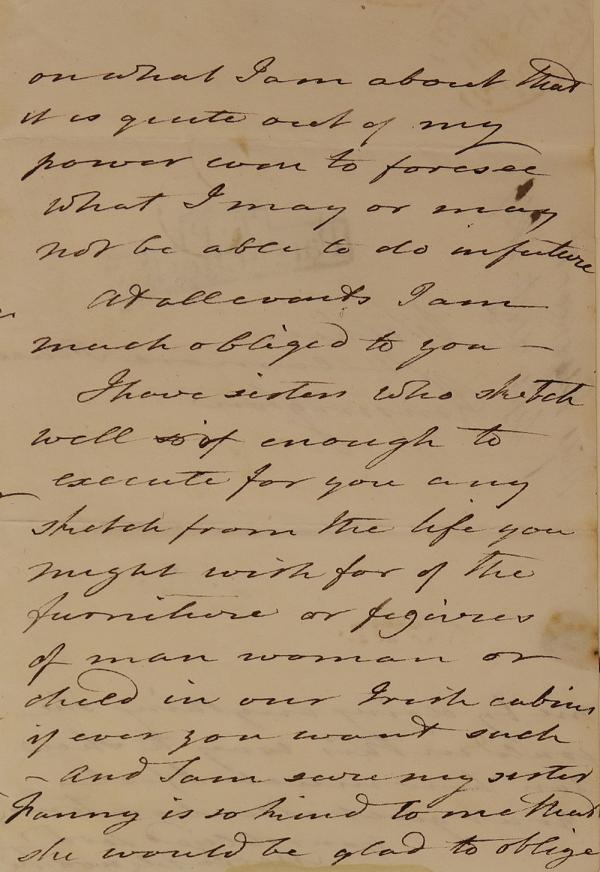 on what I am about that
it is quite out of my
power even to foresee
what I may or may
not be able to do in future
At all events I am
much obliged to you —
I have sisters who sketch
well enough to
execute for you any
sketch from the life you
might wish for of the
furniture or figures
of man woman or
child in our Irish cabins
if ever you want such
– And I am sure my sister
Fanny is so kind to me that
she would be glad to oblige